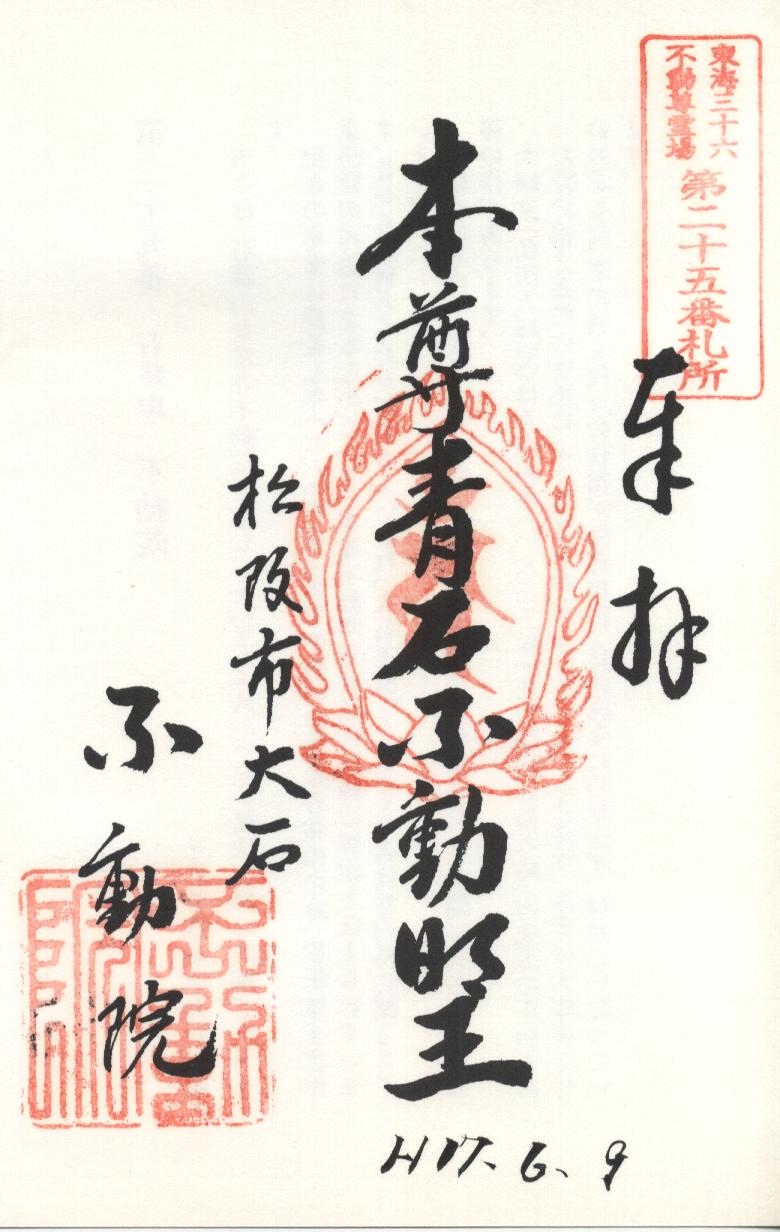 東海三十六
不動尊霊場
第二十五番札所
奉拝
本尊青石不動明王
松阪市大石
不動院
H17.6.9
不動院